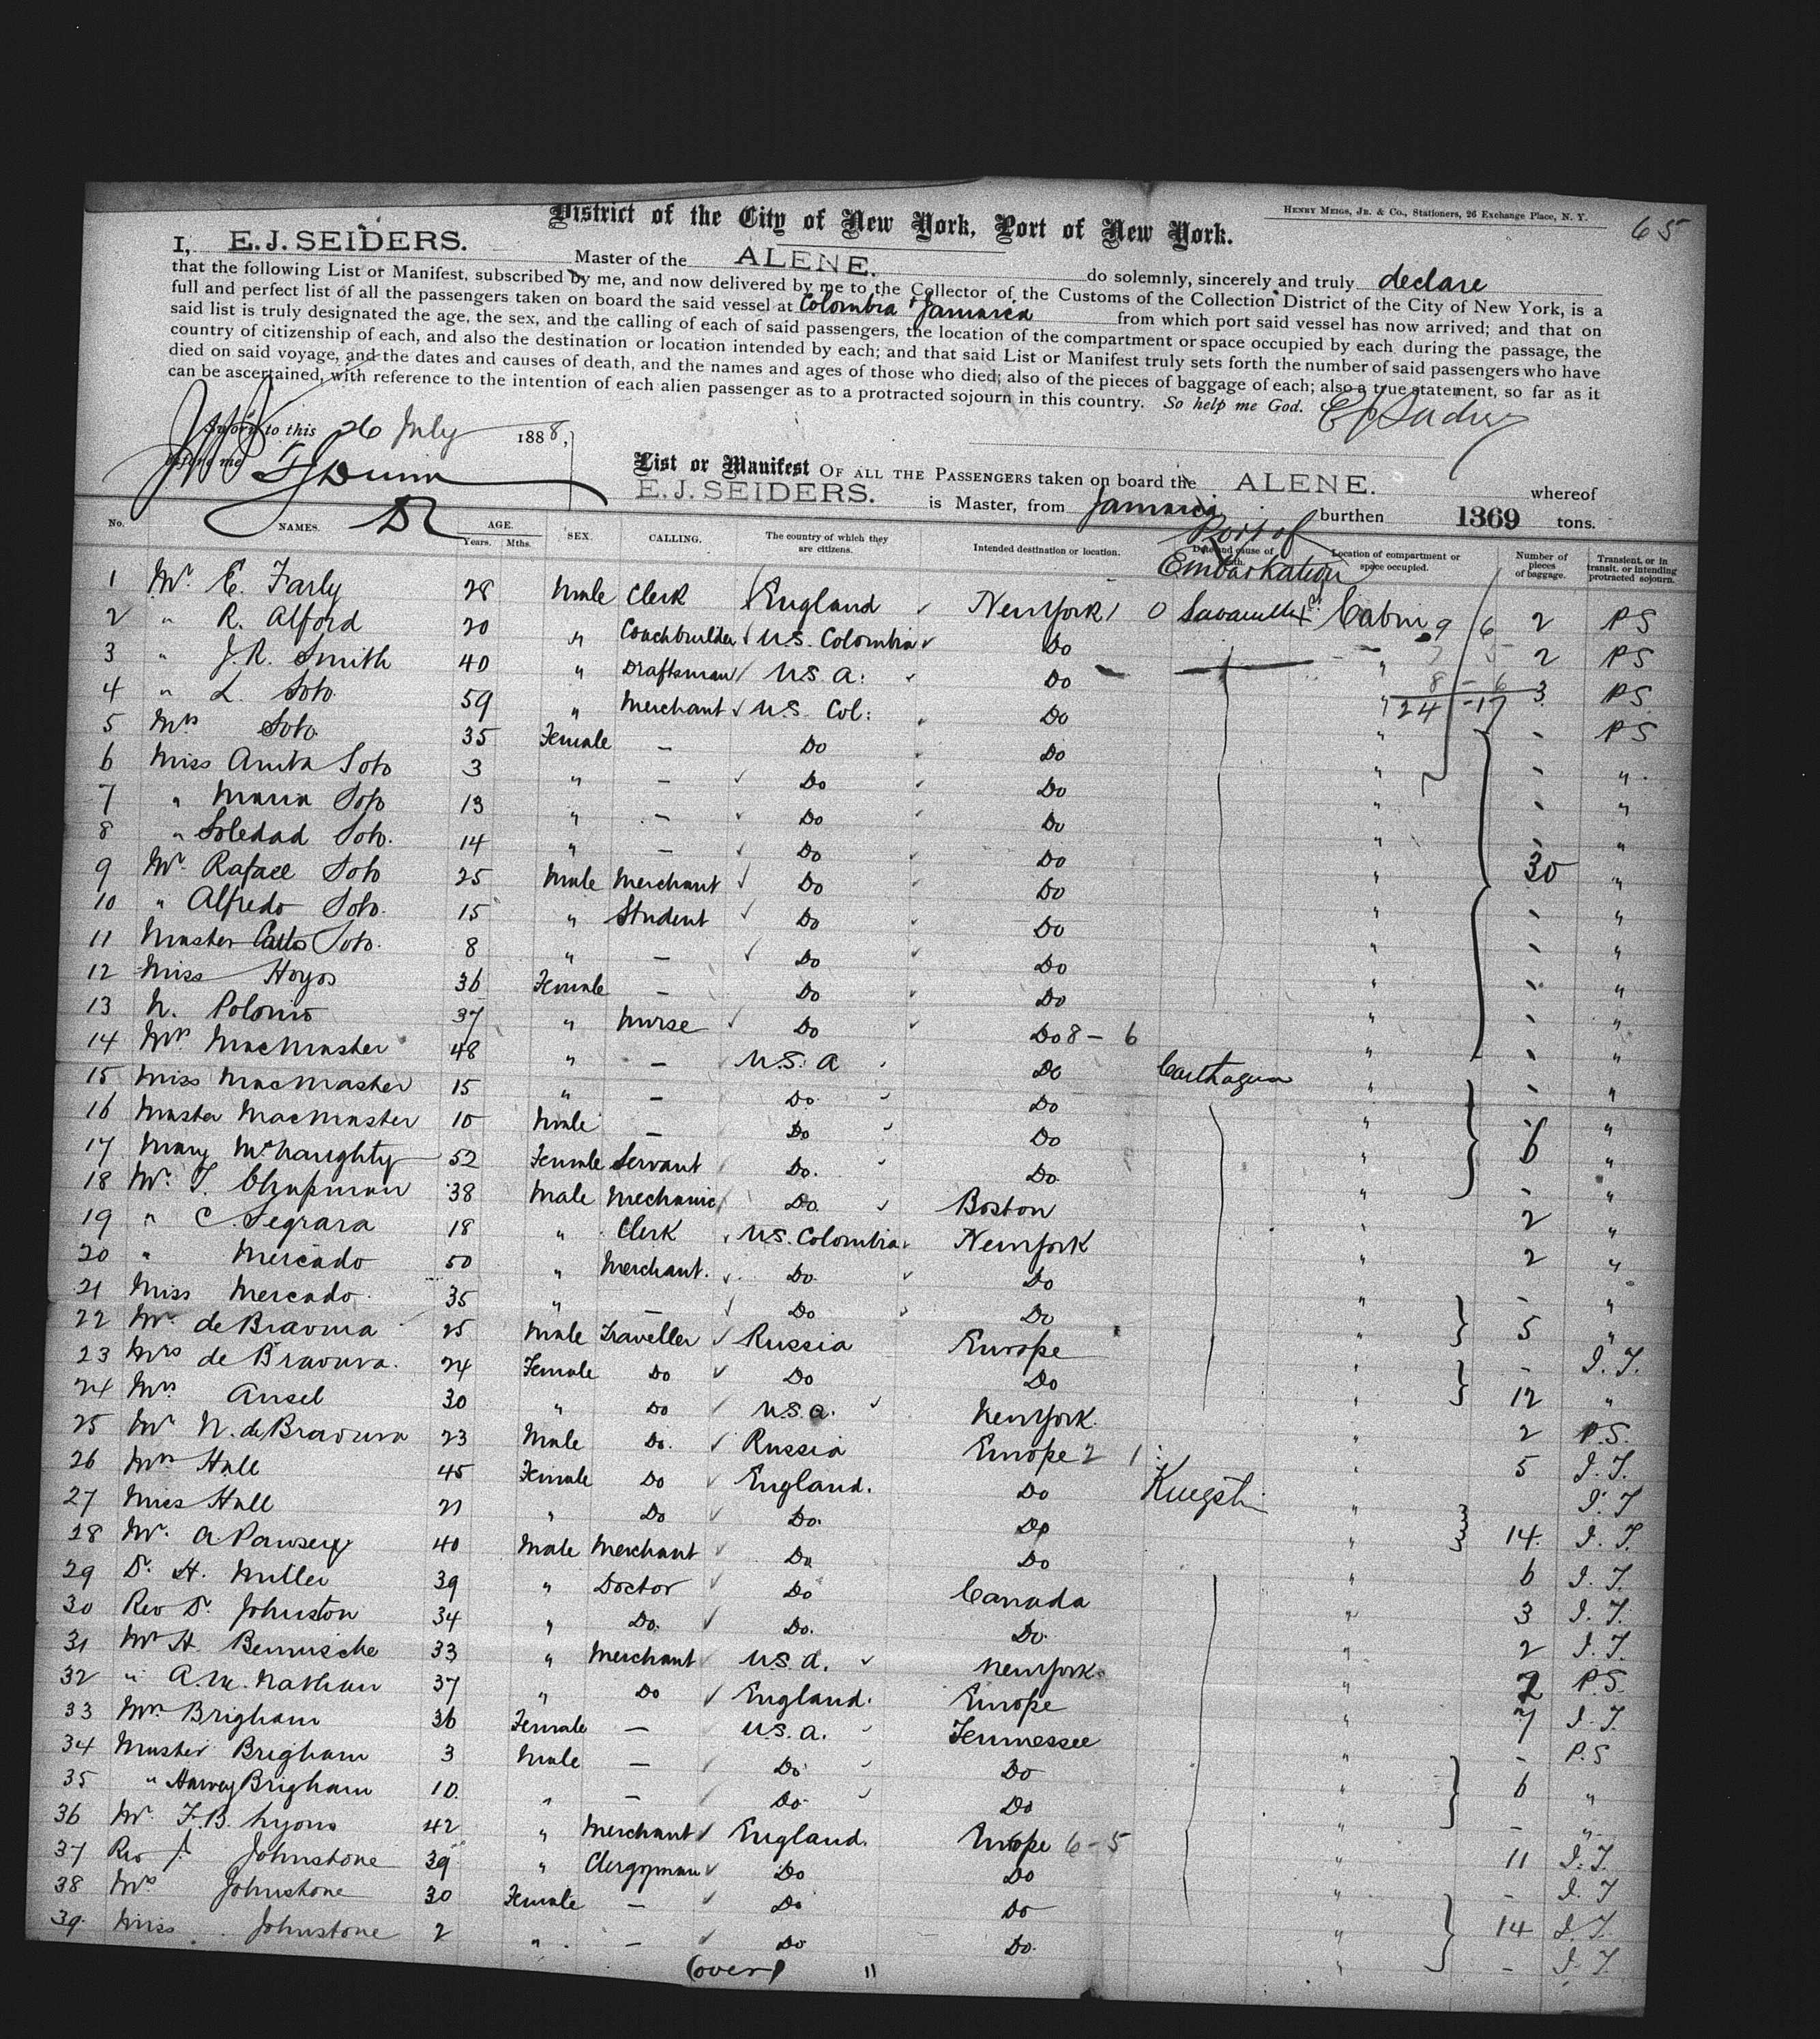 HENRY MEIGS, JR. & CO., Stationers, 26 Exchange Place, N. Y.
65
District of the City of New York, Port of New York.
I, E. J. SEIDERS. Master of the ALENE. do solemnly, sincerely and truly declare
that the following List or Manifest, subscribed by me, and now delivered by me to the Collector of the Customs of the Collection District of the City of New York, is a
full and perfect list of all the passengers taken on board the said vessel at Colombia & Jamaica from which port said vessel has now arrived; and that on
said list is truly designated the age, the sex, and the calling of each of said passengers, the location of the compartment or space occupied by each during the passage, the
country of citizenship of each, and also the destination or location intended by each; and that said List or Manifest truly sets forth the number of said passengers who have
died on said voyage, and the dates and causes of death, and the names and ages of those who died; also of the pieces of baggage of each; also a true statement, so far as it
can be ascertained, with reference to the intention of each alien passenger as to a protracted sojourn in this country. So help me God.
Sworn to this 26 July 1888,
before me
List or Manifest OF ALL THE PASSENGERS taken on board the ALENE. whereof
E. J. SEIDERS. is Master, from Jamaica burthen 1369 tons.
No. NAMES. AGE. Years. Mths. SEX. CALLING. The country of which they are citizens. Intended destination or location. Date and cause of death. Port of Embarkation Location of compartment or space occupied. Number of pieces of baggage. Transient, or in transit, or intending protracted sojourn.
1 Mr. E. Farly 28 Male Clerk England New York 10 Savanilla Cabin 9 6 2 PS
2 " R. Alford 20 " Coachbuilder U.S. Colombia Do " 7 5 2 PS
3 " J. R. Smith 40 " Draftsman U.S.A. Do " 8 - 6 3 PS
4 " L. Soto 59 " Merchant U.S. Col: Do " 24 - 17 - PS
5 Mrs Soto 35 Female - Do Do " - "
6 Miss Anita Soto 3 " - Do Do " - "
7 " Maria Soto 13 " - Do Do " - "
8 " Soledad Soto. 14 " - Do Do " 30 "
9 Mr. Rafael Soto 25 Male Merchant Do Do " - "
10 " Alfredo Soto. 15 " Student Do Do " - "
11 Master Carlos Soto. 8 " - Do Do " - "
12 Miss Hoyos 36 Female - Do Do " - "
13 N. Polonio 37 " Nurse Do Do 8 - 6 " - "
14 Mrs MacMaster 48 " - U.S.A Do Carthagena " - "
15 Miss MacMaster 15 " - Do Do " - "
16 Master MacMaster 10 Male - Do Do " 6 "
17 Mary McNaughty 52 Female Servant Do. Do " - "
18 Mr. T. Chapman 38 Male Mechanic Do Boston " 2 "
19 " C. Segrara 18 " Clerk U.S. Colombia New York " 2 "
20 " Mercado 50 " Merchant. Do. Do " - "
21 Miss Mercado. 35 " - Do Do " 5 "
22 Mr. de Bravura 25 Male Traveller Russia Europe " - I. T.
23 Mrs de Bravura. 24 Female Do Do Do " 12 "
24 Mrs Ansel 30 " Do U.S.A. New York. " 2 P.S.
25 Mr N. de Bravura 23 Male Do. Russia Europe 2 1 " 5 I. T.
26 Mrs Hall 45 Female Do England. Do Kingston " I. T
27 Miss Hall 21 " Do Do. Do " 14. I. T.
28 Mr. A. Pawsey 40 Male Merchant Do Do " 6 I. T.
29 Dr. H. Miller 39 " Doctor Do Canada " 3 I. T.
30 Rev Dr. Johnston 34 " Do. Do. Do. " 2 I. T.
31 Mr H. Bennische 33 " Merchant U.S.A. New York. " 2 P.S.
32 " A. M. Nathan 37 " Do England. Europe " 7 I. T.
33 Mrs Brigham 36 Female - U.S.A. Tennessee " - P.S
34 Master Brigham 3 Male - Do Do " 6 "
35 " Harvey Brigham 10. " - Do Do " - "
36 Mr. F. B. Lyons 42 " Merchant England. Europe 6 - 5 " 11 I. T.
37 Rev J. Johnstone 39 " Clergyman Do Do " - I. T
38 Mrs Johnstone 30 Female - Do Do " 14 I. T.
39. Miss Johnstone 2 " - Do Do. " - I. T.
(over) 11